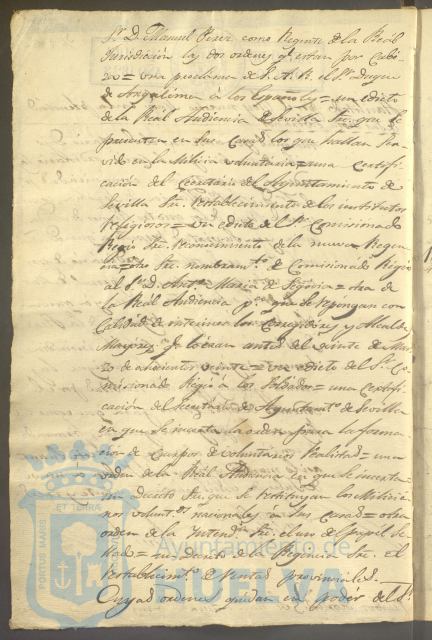 Sr. D. Manuel Perez como Regente de la Real
Jurisdiccion las dos ordenes qe. estan por cabe
za = una proclama de S. A. R. el Sr. Duque
de Angulema a los Españoles = un edicto
de la Real Audiencia de Sevilla Sre. que se
presenten en sus casas los que hallan ser
vido en la Milicia voluntaria = una certifi
cación del Secretario del Ayuntamiento de
Sevilla Sre. restablecimiento de los institutos
religiosos = un edicto del Sr. Comisionado
Regio Sre. reconocimiento de la nueva Regen
cia = otro Sre. nombramto. de Comisionado Regio
al Sr. D. Anto. Maria de Segovia = otra de
la Real Audiencia pa. que se repongan con
Calidad de interinos los Corregidores y Alcaldes
Mayores qe. lo eran antes del veinte de Mar
zo de ochocientos veinte = un edicto del Sr. Co
misionado Regio a los Soldados = una Certifi
cación del Secretario de Ayuntamto. de Sevilla
en que se inserta la orden para la forma
cion de Cuerpos de voluntarios Realistas = una
orden de la Real Audiencia en que se inserta
un adicto Sre. que se restituyan los Milicia
nos voluntos. nacionales a sus casas = otra
orden de la Intenda. Sre. el uso de papel Se
llado = un decreto de la Regencia Sre. el
restablecimto. de rentas provinciales.
Cuyas ordenes quedan en poder del Sr.
PORTUS MARIS ET TERRÆ
Ayuntamiento de
HUELVA